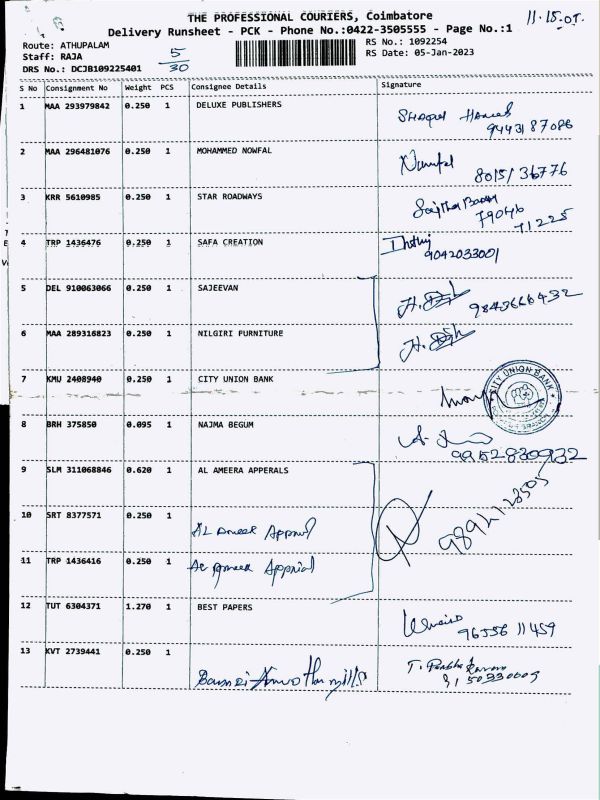 THE PROFESSIONAL COURIERS, Coimbatore
Delivery Runsheet - PCK - Phone No.:0422-3505555 - Page No.:1
Route: ATHUPALAM
RS No.: 1092254
Staff: RAJA
5/30
RS Date: 05-Jan-2023
DRS No.: DCJB109225401
S No Consignment No Weight PCS Consignee Details Signature
1 MAA 293979842 0.250 1 DELUXE PUBLISHERS
9443187086
2 MAA 296481076 0.250 1 MOHAMMED NOWFAL
8015136776
3 KRR 5610985 0.250 1 STAR ROADWAYS
79046
71225
4 TRP 1436476 0.250 1 SAFA CREATION
9042033001
5 DEL 910063066 0.250 1 SAJEEVAN
9843666432
6 MAA 289316823 0.250 1 NILGIRI FURNITURE
7 KMU 2408940 0.250 1 CITY UNION BANK
CITY UNION BANK
8 BRH 375850 0.095 1 NAJMA BEGUM
9952830932
9 SLM 311068846 0.620 1 AL AMEERA APPERALS
10 SRT 8377571 0.250 1
11 TRP 1436416 0.250 1
12 TUT 6304371 1.270 1 BEST PAPERS
96556 11459
13 KVT 2739441 0.250 1